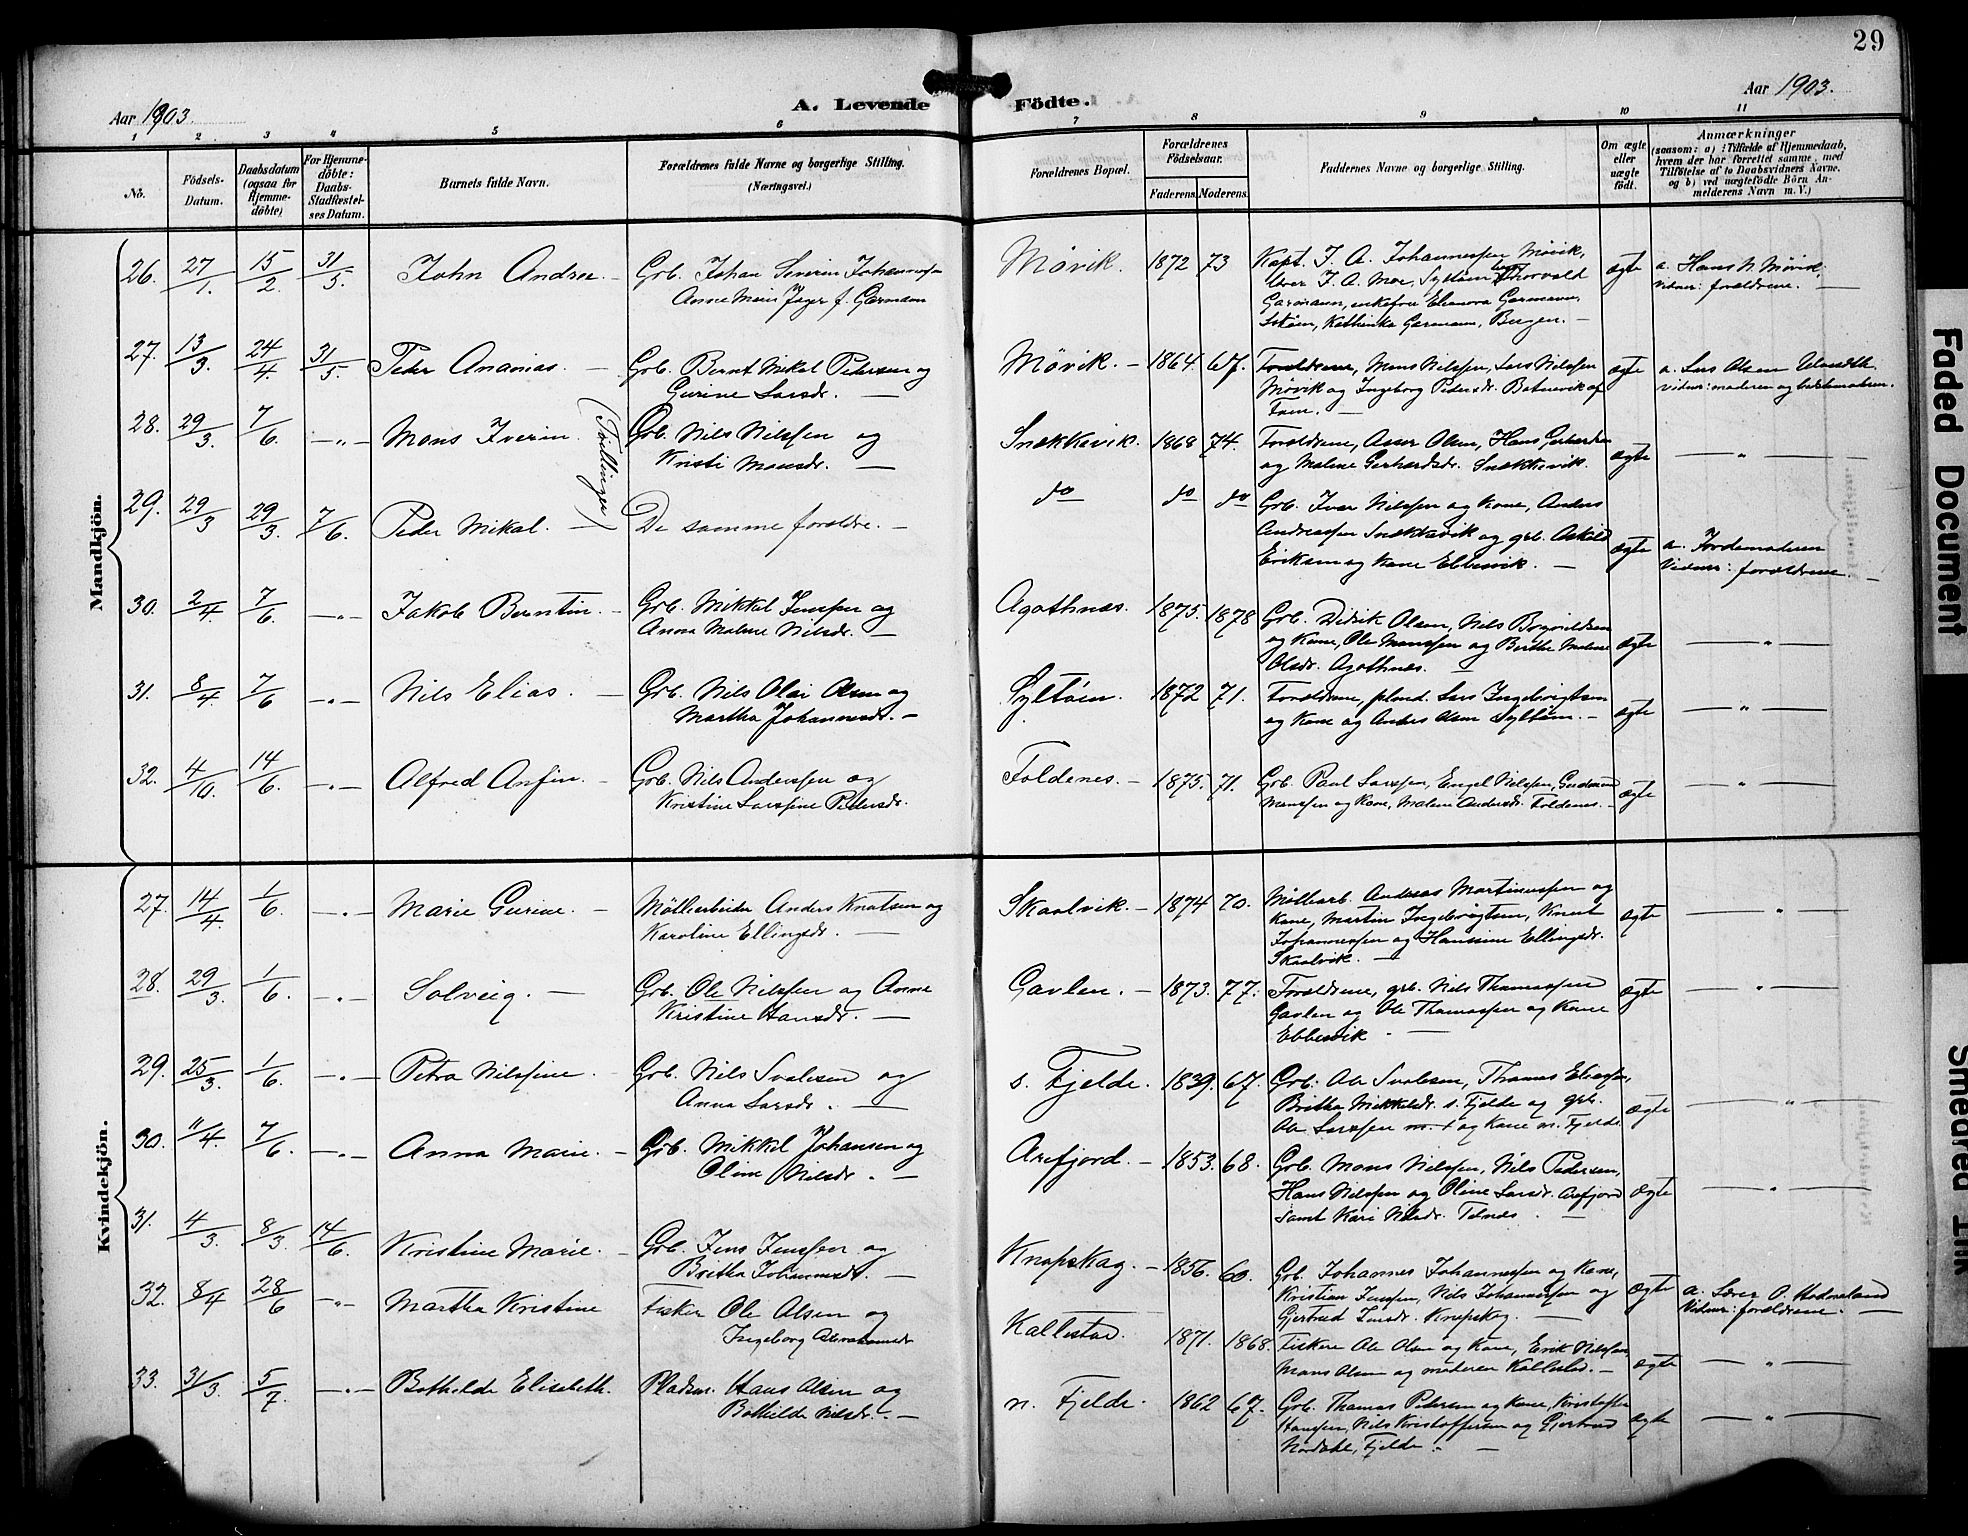 29
Aar 1903.
A. Levende Födte.
Aar 1903.
1 2 3 4 5 6 7 8 9 10 11
No.
Födsels-Datum.
Daabsdatum (ogsaa for Hjemmedöbte)
For Hjemmedöbte: Daabs-Stadfæstelses Datum.
Barnets fulde Navn.
Forældrenes fulde Navne og borgerlige Stilling.
(Næringsvei.)
Forældrenes Bopæl.
Forældrenes Födselsaar.
Faderens Moderens.
Faddernes Navne og borgerlige Stilling.
Om ægte eller uægte födt.
Anmærkninger
(saasom: a) i Tilfælde af Hjemmedaab,
hvem der har forrettet samme, med
Tilföielse af to Daabsvidners Navne.
og b) ved uægtefödte Börn Anmelderens Navn m. V.)
Mandkjön.
26. 27/1. 15/2. 31/5. John Andrea — Grb. Johan Severin Johannessen
Anne Marie Jæger f. Garmann
Møvik. 1872 73 Kapt. J. A. Johannessen Møvik,
J. A. Moe, Syltøen Thorvald
Garmann, enkefru Eleonora Garmann,
Kathinka Garmann, Bergen. —
ægte a. Hans N. Møvik.
Vidner: forældrene. —
27. 13/3. 24/4. 31/5. Peder Ananias. — Grb. Bernt Mikal Petersen og
Gurine Larsdr. —
Møvik. — 1864. 67. Forældrene, Mons Nilssen, Lars Nilssen
Møvik og Ingeborg Pedersdr. Batnevik af
Fane. —
ægte a. Lars Olsen
Vidner: moderen og bedstemoderen.
28. 29/3. 7/6. —"— Mons Iverin. (Tvillinger) Grb. Nils Nilssen og
Kristi Monsdr. —
Snekkevik. 1868 74. Forældrene, Asser Olsen, Hans Gerhardsen
og Malene Gerhardsdr. Snekkevik. ægte — " —
29. 29/3 29/3. 7/6. Peder Mikal. — De samme forældre. —
do do do Grb. Iver Nilssen og Kone, Anders
Andreassen Snekkevik og grb. Askild
Eriksen og Kone Ebbesvik. —
ægte a. Jordemoderen
Vidner: forældrene. —
30. 2/4. 7/6. —"— Jakob Berntin. — Grb. Mikkel Jenssen og
Anna Malene Nilsdr. —
Agothnæs. 1875. 1878 Grb. Didrik Olsen, Nils
og Kone, Ole Monssen og Berthe Malene
Olsdr. Agothnæs. — ægte — " —
31. 8/4. 7/6 —"— Nils Elias. — Grb. Nils Olai Olsen og
Martha Johannesdr. —
Syltøen. 1872 71. Forældrene, plmd. Lars Ingebrigtsen
og Kone og Anders Olsen Syltøen. — ægte — " —
32. 4/10. 14/6. —"— Alfred Anfin. — Grb. Nils Anderssen og
Kristine Larsine Pedersdr.
Foldenes. — 1875. 71. Grb. Paul Larssen, Engel Nilssen, Gudmund
Monssen og Kone, Malene Andersdr. Foldenes. — ægte — " —
Kvindekjön.
27. 14/4. 1/6. —"— Marie Gurine. — Møllearbeider Anders Knutsen og
Karoline Ellingsdr. —
Skaalvik. — 1874 70. Møllearb. Andreas Martinussen og
Kone, Martin Ingebrigtsen, Knut
Johannessen og Hansine Ellingsdr.
Skaalvik. — ægte — " —
28. 29/3. 1/6. —"— Solveig. — Grb. Ole Nilssen og Anne
Kristine Hansdr. —
Gavlen. — 1873. 77. Forældrene, grb. Nils Thomassen
Gavlen og Ole Thomassen og Kone
Ebbesvik — ægte — " —
29. 25/3. 1/6. —"— Petra Nilssine. — Grb. Nils og
Anna Larsdr. —
s. Fjelde. 1839. 67. Grb. Thomas Eliassen,
Britha Mikkelsdr. s. Fjelde og grb.
Ole Larssen og Kone n. Fjelde ægte — " —
30. 11/4. 7/6. —"— Anna Marie. — Grb. Mikkel Johansen og
Oline Nilsdr. —
Arefjord. — 1853. 68. Grb. Mons Nilssen, Nils Pedersen,
Hans Nilssen og Oline Larsdr. Arefjord
samt Kari Nilsdr. Telnes. — ægte — " —
31. 4/3. 8/3. 14/6. Kristine Marie. — Grb. Jens Jenssen og
Britha Johannesdr. —
Knapskog. — 1856. 60. Grb. Johannes Johannessen og Kone,
Kristian Jenssen, Nils Johannessen og
Gjertrud Jensdr. Knapskog. —
ægte a. Lærer O.
Vidner: forældrene. —
32. 8/4 28/6 —"— Martha Kristine Fisker Ole Olsen og
Ingeborg Abrahamsdr
Kallestad. 1871. 1868. Fisker Ole Olsen og Kone, Erik Nilssen,
Mons Olsen og moderen Kallestad. — ægte — " —
33. 31/3. 5/7. —"— Bothilde Elisabeth. Pladsm. Hans Olsen og
Bothilde Nilsdr. —
n. Fjelde. 1862 67. Grb. Thomas Petersen og Kone, Kristoffer
Hanssen, Nils Kristoffersen og Gjertrud
Nordahl, Fjelde. — ægte — " —
Faded Document
Smeared Ink